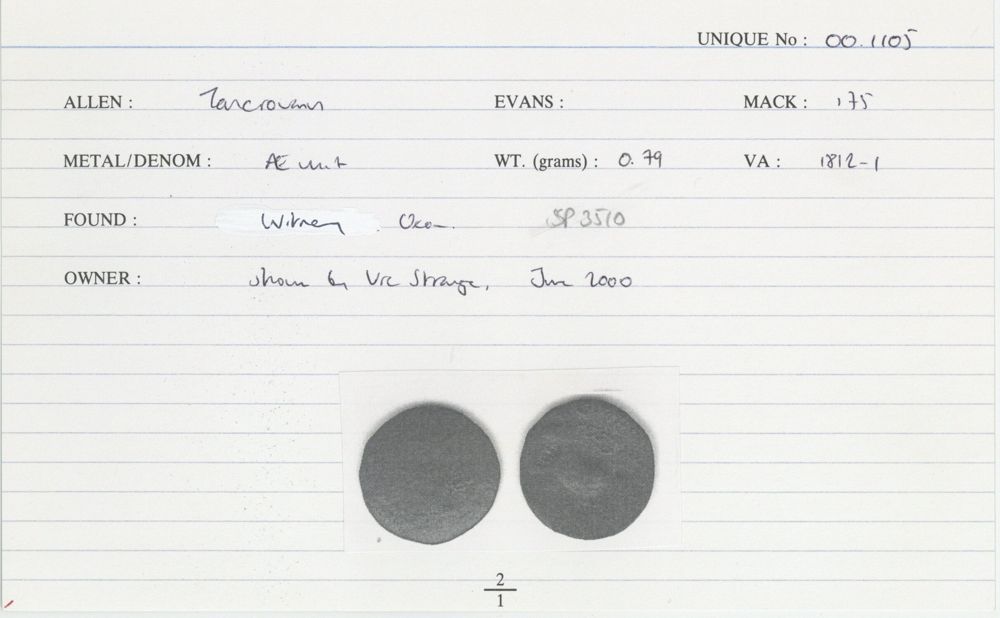 UNIQUE No : 00.1105
ALLEN : Tasciovanus EVANS : MACK : 175
METAL/DENOM : Æ unit WT. (grams) : 0.79 VA : 1812-1
FOUND : Witney Oxon. SP 3510
OWNER : shown by Vic Strange, June 2000
2
1